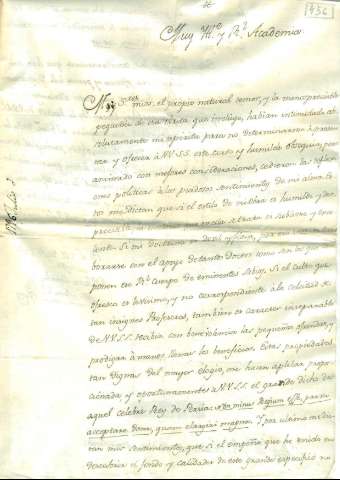 1786
Muy Ill.e y R.l Academia
Muy S.res mios, el propio natural temor, y la menospreciable
pequeñez de esa obrita que incluyo, habian intimidado ab-
solutamente mi espiritu para no determinarme à presen-
tar y ofrecer à V.SS. este corto y humilde obsequio, pero
animado con mejores consideraciones, cedieron las reflexio-
nes politicas à los piadosos sentimientos de mi alma. Es-
tos me dictan que si el estilo de mi obra es humilde y des-
preciable, la materia que en ella se trata es sublime y
Si mi doctrina es debil y podrá
borarse con el apoyo de tantos Doctos como son los que com-
ponen ese R.l Cuerpo de eminentes sabios. Si el culto que
ofresco es levisimo, y no correspondiente à la celsitud de
tan insignes Profesores, tambien es caracter inseparable
de V.SS. recibir con benevolencia las pequeñas ofrendas, y
prodigar à manos llenas los beneficios. Estas propiedades
tan dignas del mayor elogio, me hacen aplicar propor-
cionada y oportunamente à V.SS. el grande dicho de
aquel celebre Rey de Persia: non minus Regium est, parva
accipere dona, quam elargiri magna. Y por ultimo me dic-
tan mis sentimientos, que si el empeño que he tenido en
descubrir el fondo y calidades de este grande especifico no